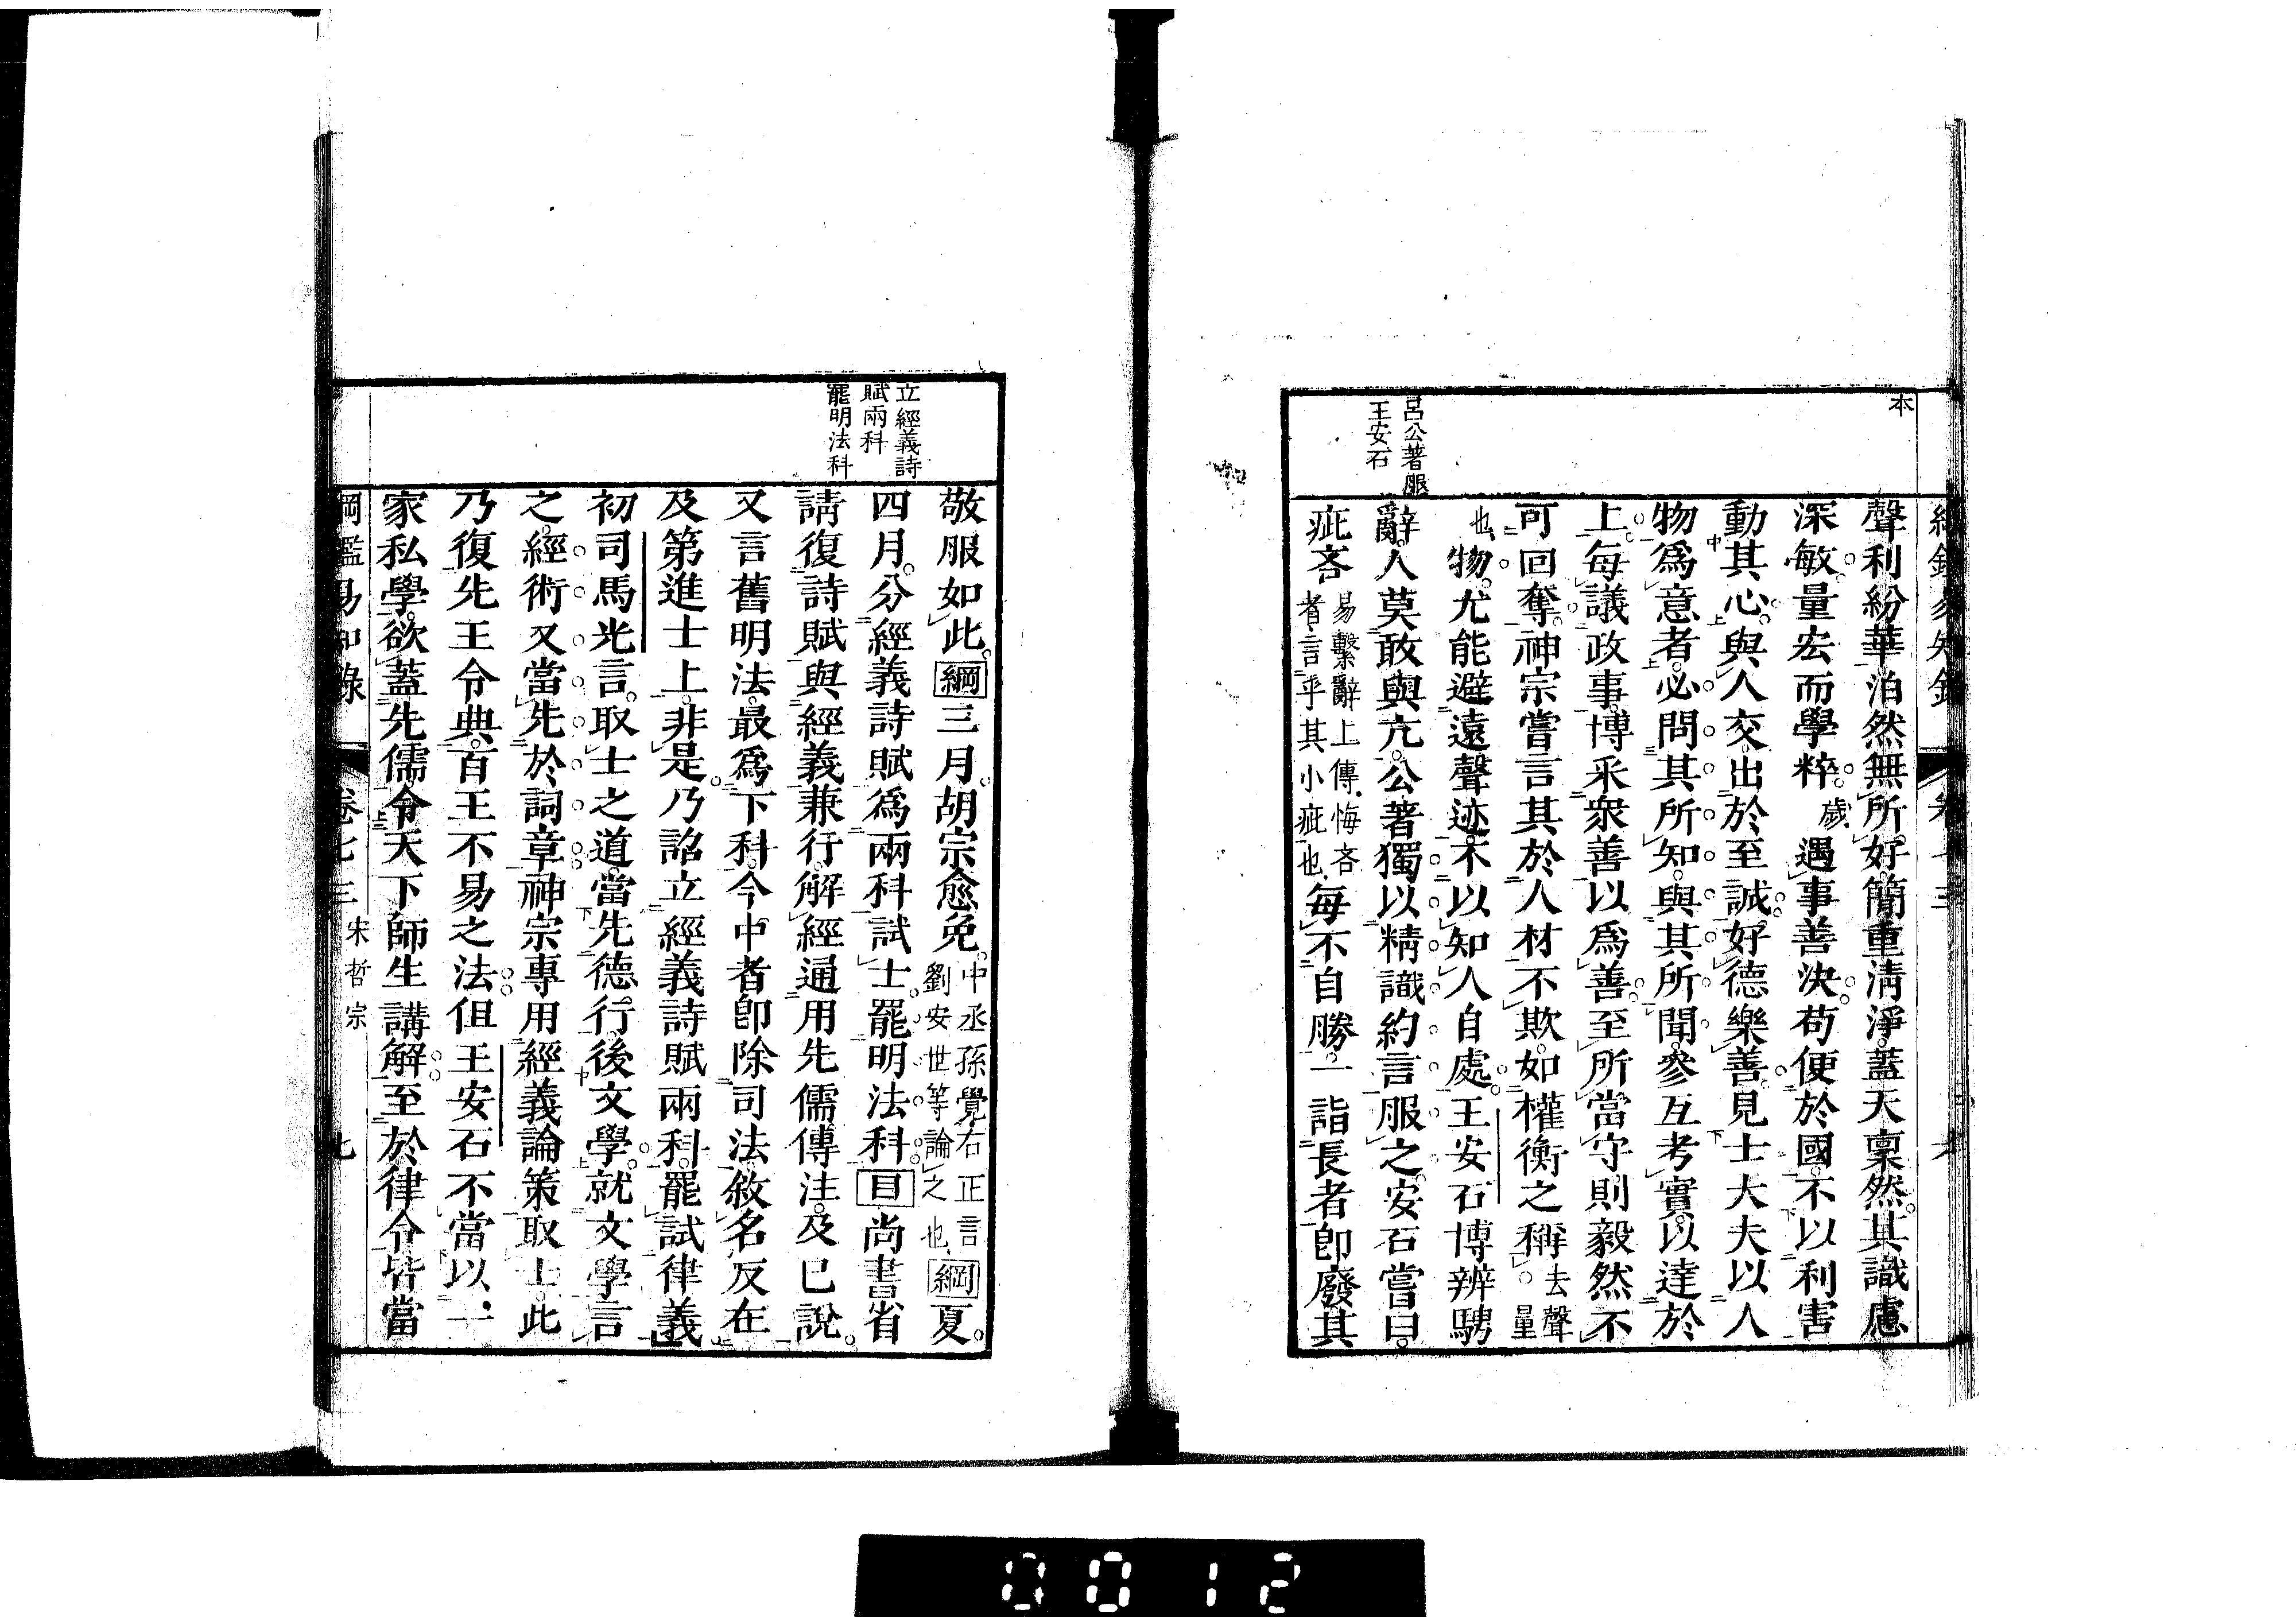 本
聲利紛華泊然無所好簡重清淨蓋天稟然其識慮
深敏量宏而學粹歲遇事善決苟便於國不以利害
動其心與人交出於至誠好德樂善見士大夫以人
物爲意者必問其所知與其所聞參互考實以達於
上每議政事博采衆善以爲善至所當守則毅然不
可回奪神宗嘗言其於人材不欺如權衡之稱去聲量
也物尤能避遠聲迹不以知人自處王安石博辨騁
呂公著服
王安石
辭人莫敢與亢公著獨以精識約言服之安石嘗曰
疵吝易繫辭上傳悔吝者言乎其小疵也每不自勝一詣長者即廢其
敬服如此綱三月胡宗愈免中丞孫覺右正言劉安世等論之也綱夏
立經義詩
賦兩科
罷明法科
四月分經義詩賦爲兩科試士罷明法科目尚書省
請復詩賦與經義兼行解經通用先儒傳注及已說
又言舊明法最爲下科今中者即除司法敘名反在
及第進士上非是乃詔立經義詩賦兩科罷試律義
初司馬光言取士之道當先德行後文學就文學言
之經術又當先於詞章神宗專用經義論策取士此
乃復先王令典百王不易之法但王安石不當以一
家私學欲蓋先儒令天下師生講解至於律令皆當
綱鑑易知錄 卷七三 宋哲宗 七